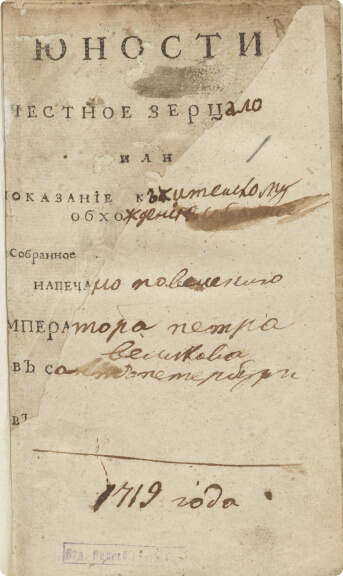 ЮНОСТИ
ЧЕСТНОЕ ЗЕРцало
ИЛИ
ПОКАЗАНІЕ Къжитейскому
ОБХОжденію
Собранное
НАПЕЧАно повелению
ИМПЕРАтора петра
великова
ВЪ Санктъпетербурги
ВЪ
1719 года